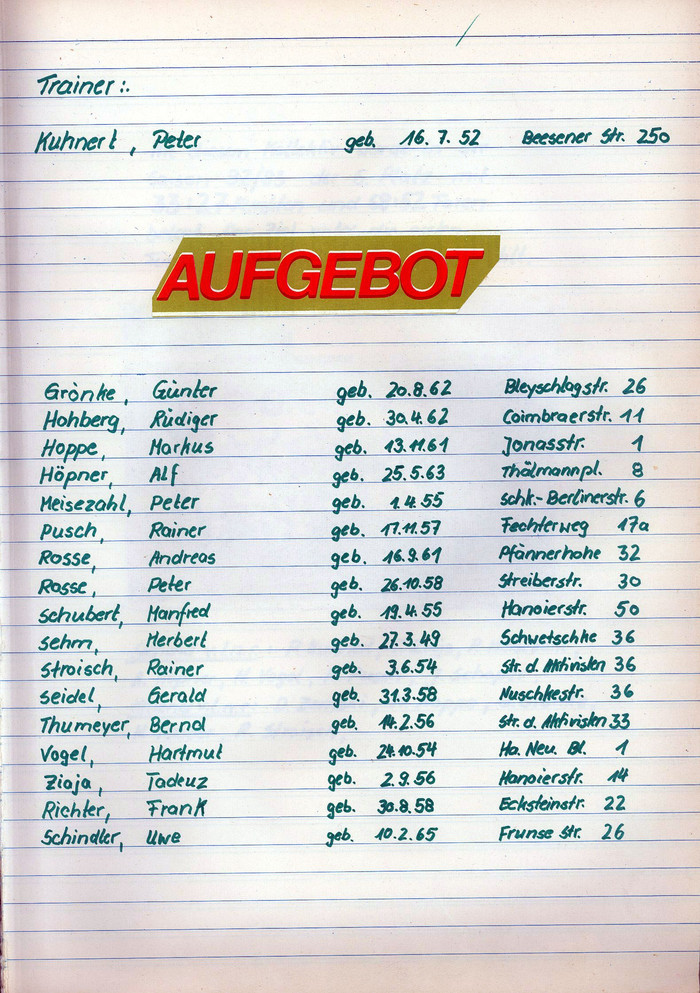 Trainer:.
Kuhnert, Peter geb. 16.7.52 Beesener Str. 250
AUFGEBOT
Grönke, Günter geb. 20.8.62 Bleyschlagstr. 26
Hohberg, Rüdiger geb. 30.4.62 Coimbraerstr. 11
Hoppe, Markus geb. 13.11.61 Jonasstr. 1
Höpner, Alf geb. 25.5.63 Thälmannpl. 8
Meisezahl, Peter geb. 1.4.55 Schk.-Berlinerstr. 6
Pusch, Rainer geb. 17.11.57 Fechterweg 17a
Rosse, Andreas geb. 16.9.61 Pfännerhöhe 32
Rosse, Peter geb. 26.10.58 Streiberstr. 30
Schubert, Manfred geb. 19.4.55 Hanoierstr. 50
Sehm, Herbert geb. 27.3.49 Schwetschke 36
Stroisch, Rainer geb. 3.6.54 Str. d. Aktivisten 36
Seidel, Gerald geb. 31.3.58 Nuschkestr. 36
Thumeyer, Bernd geb. 14.2.56 Str. d. Aktivisten 33
Vogel, Hartmut geb. 24.10.54 Ha. Neu. Bl. 1
Ziaja, Tadeuz geb. 2.9.56 Hanoierstr. 14
Richter, Frank geb. 30.8.58 Ecksteinstr. 22
Schindler, Uwe geb. 10.2.65 Frunse Str. 26